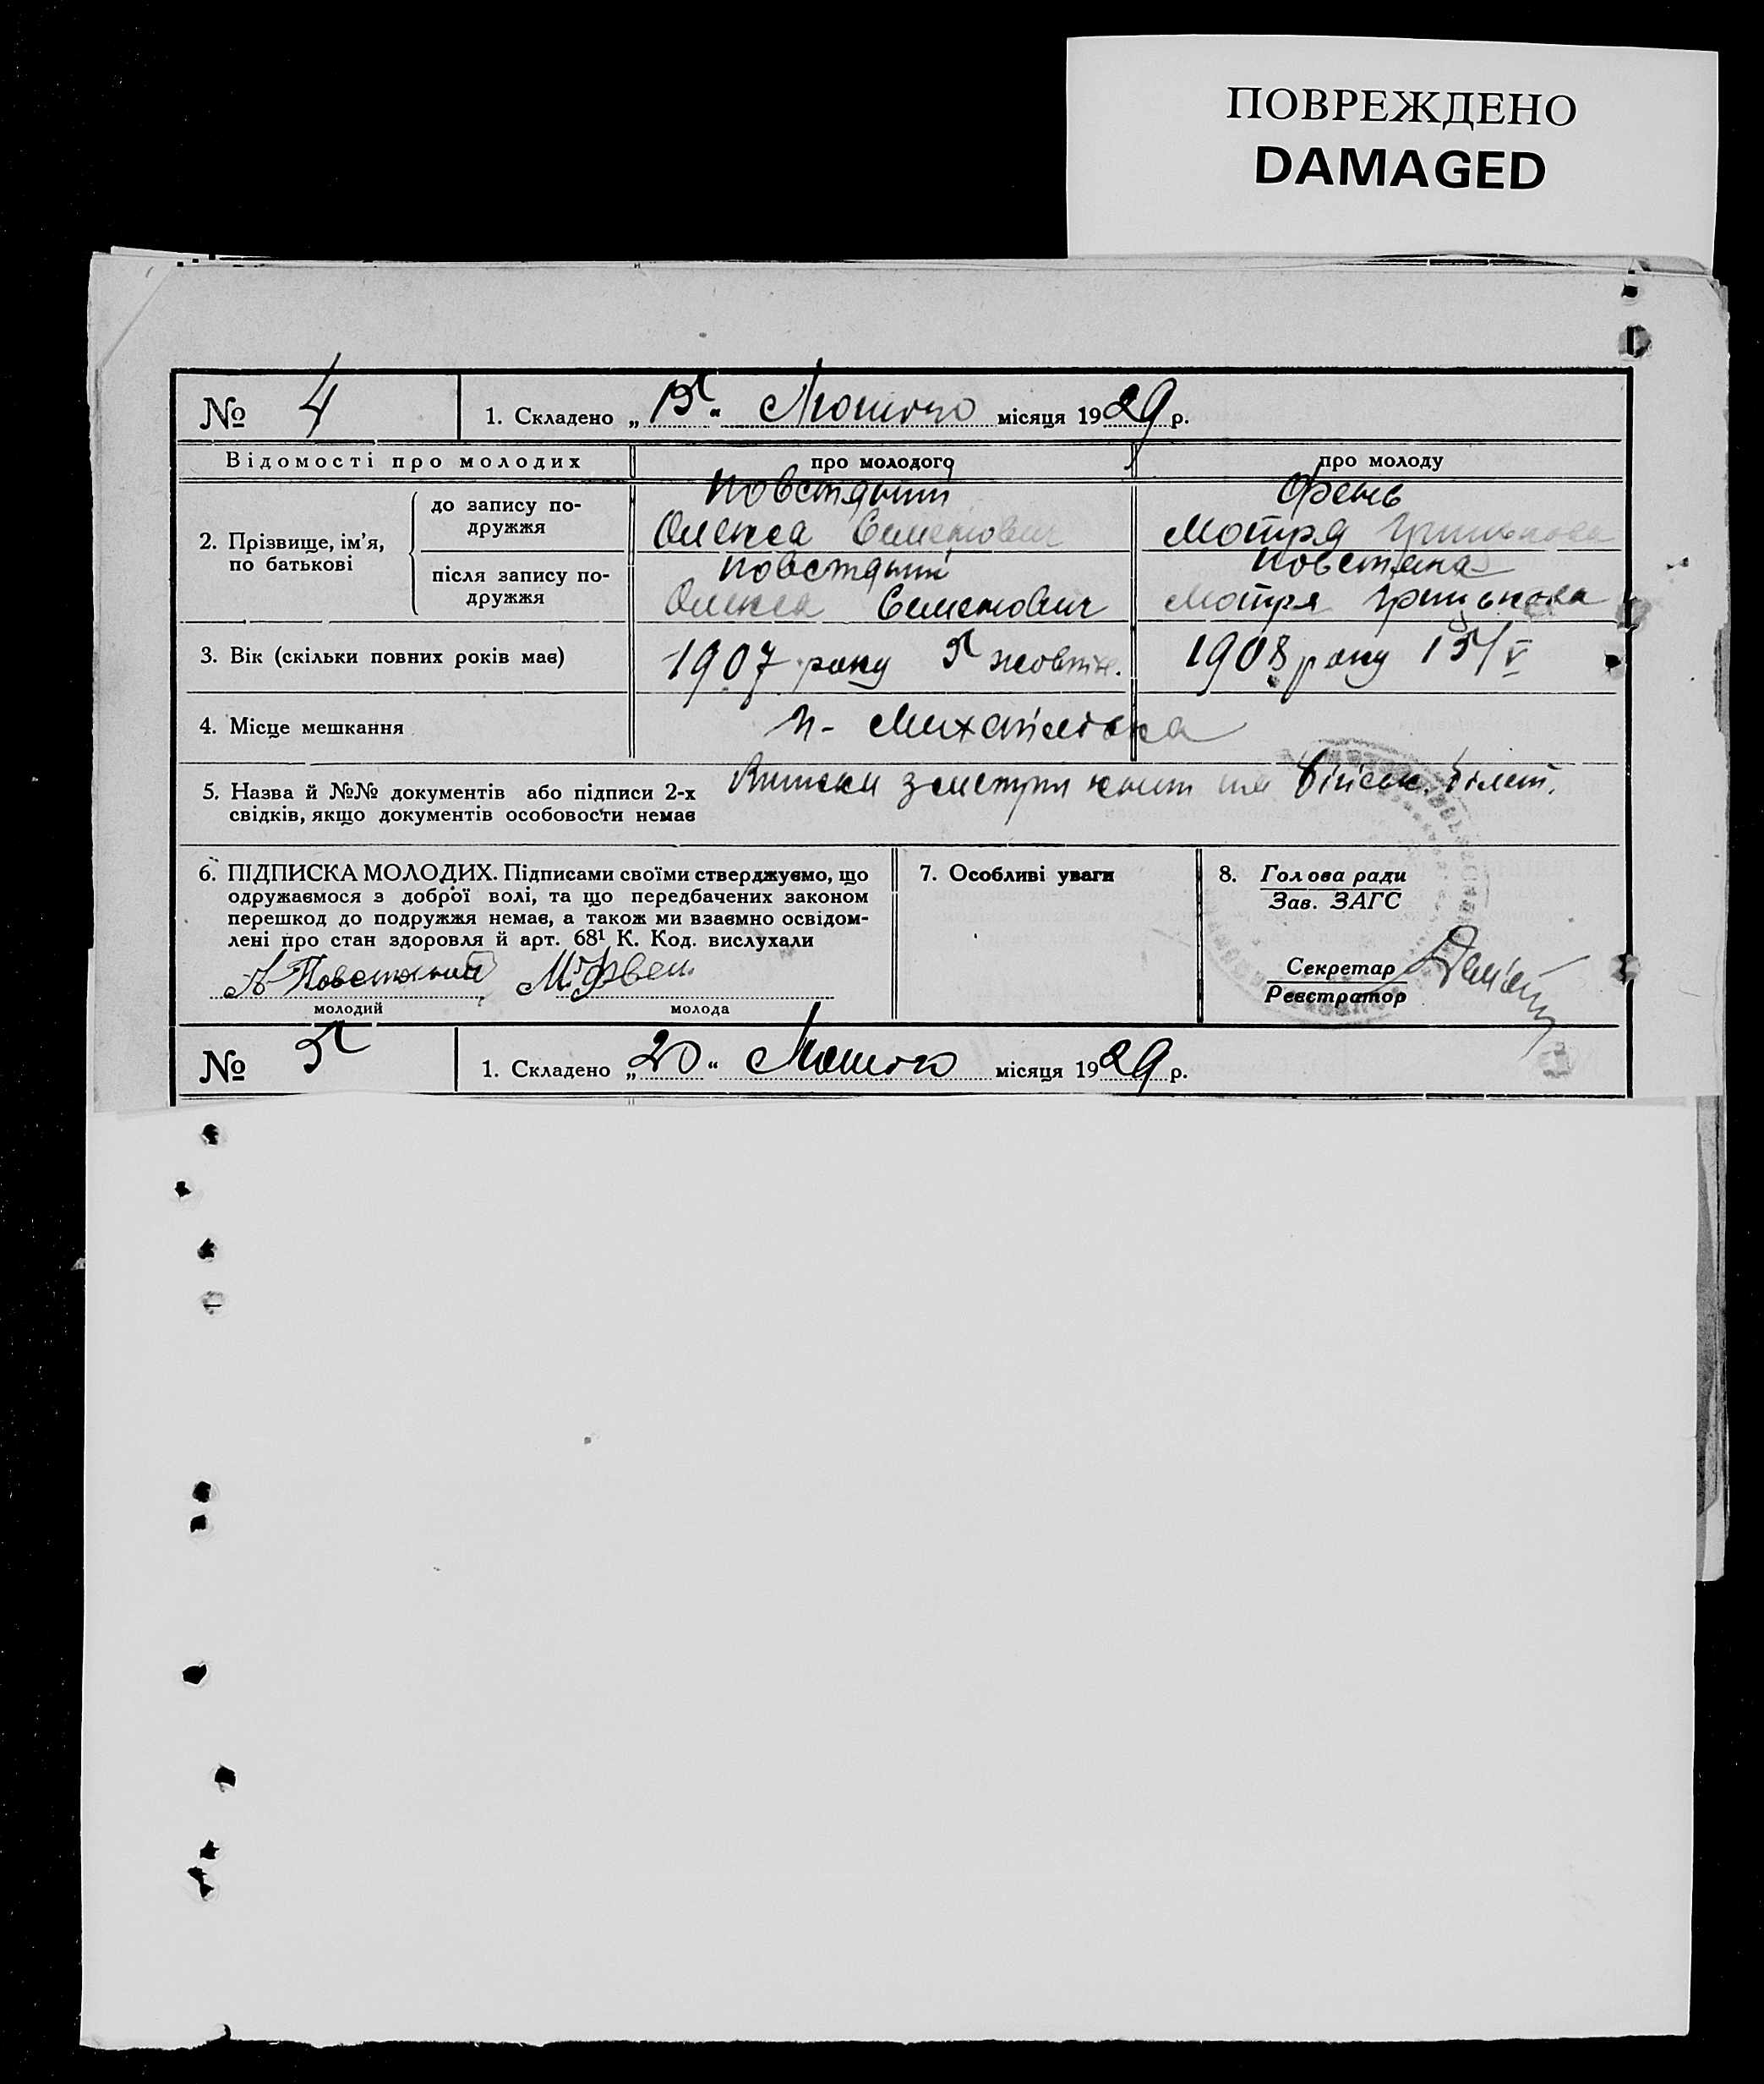 ПОВРЕЖДЕНО
DAMAGED
№ 4
1. Складено „15“ Лютого місяця 1929 р.
Відомості про молодих
про молодого
про молоду
2. Прізвище, ім’я, по батькові
до запису подружжя
Повстяний
Олекса Семенович
Фень
Мотря Грицькова
після запису подружжя
Повстяний
Олекса Семенович
Повстяна
Мотря Грицькова
3. Вік (скільки повних років має)
1907 року 5 жовтн.
1908 року 15/V
4. Місце мешкання
Михайлівка
5. Назва й №№ документів або підписи 2-х
свідків, якщо документів особовости немає
Виписи з метрич книг та військ. білет.
6. ПІДПИСКА МОЛОДИХ. Підписами своїми стверджуємо, що
одружаємося з доброї волі, та що передбачених законом
перешкод до подружжя немає, а також ми взаємно освідом-
лені про стан здоровля й арт. 68¹ К. Код. вислухали
А Повстяний
молодий
молода
7. Особливі уваги
8. Голова ради
Зав. ЗАГС
Секретар
Реєстратор
№ 5
1. Складено „20“ Лютого місяця 1929 р.